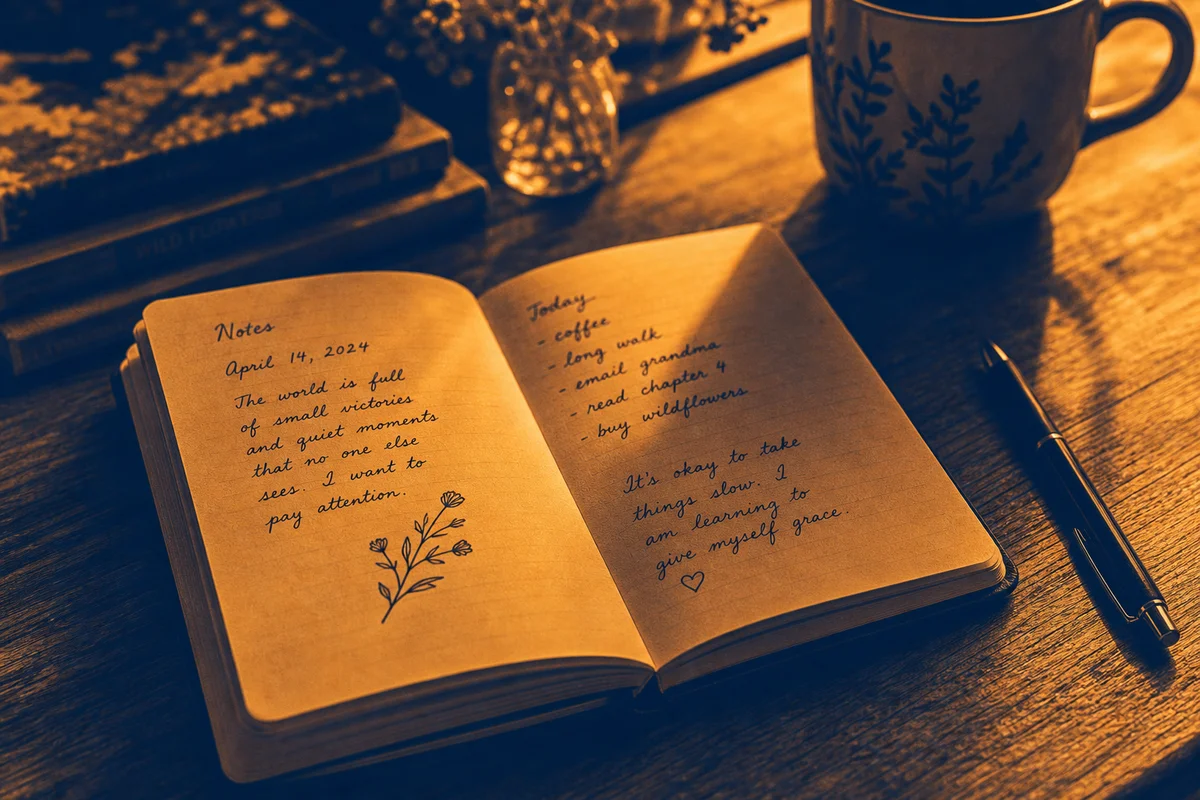 Notes
April 14, 2024
The world is full
of small victories
and quiet moments
that no one else
sees. I want to
pay attention.
Today
- coffee
- long walk
- email grandma
- read chapter 4
- buy wildflowers
It's okay to take
things slow. I
am learning to
give myself grace.